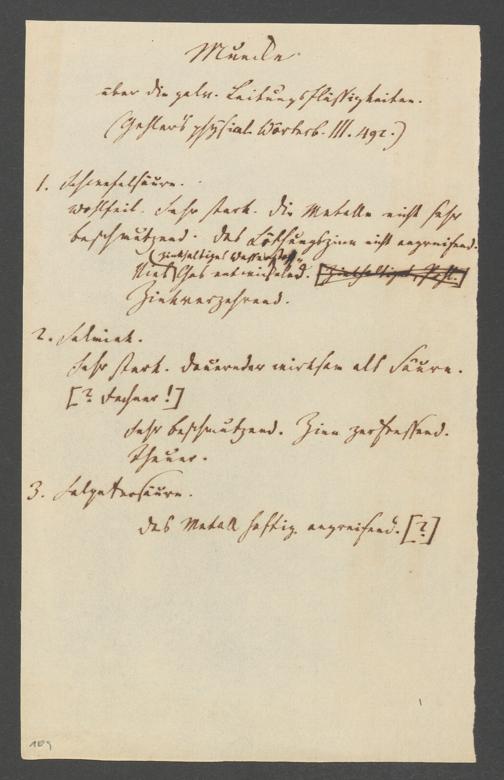 Muncke
über die galv. Leitungsflüssigkeiten.
(Gehler's physikal. Wörterb. III. 492.)
1. Schwefelsäure.
Wohlfeil. Sehr stark. die Metalle nicht sehr
beschmutzend. das Löthungszinn nicht angreifend.
(zinkhaltiges Wasserstoff
Viel Gas entwickelnd.
Zinkverzehrend.
2. Salmiak.
Sehr stark. dauernder wirksam als Säure.
[? Fechner!]
Sehr beschmutzend. Zinn zerfressend.
theuer.
3. Salpetersäure.
das Metall heftig angreifend. [?]
109